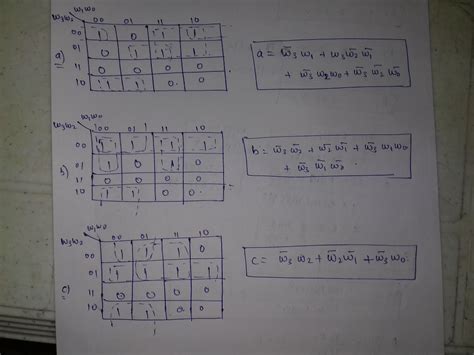 w₁w₀
w₃w₂ 00 01 11 10
00 1 0 1 1
a) 01 0 1 1 1
11 0 0 0 0
10 1 1 0 0
a = w̄₃ w₁ + w₃ w̄₂ w̄₁
+ w̄₃ w₂ w₀ + w̄₃ w̄₂ w̄₀
w₁w₀
w₃w₂ 00 01 11 10
00 1 1 1 1
b) 01 1 0 1 0
11 0 0 0 0
10 1 1 0 0
b = w̄₃ w̄₂ + w̄₂ w̄₁ + w̄₃ w₁w₀
+ w̄₃ w̄₁ w̄₀
w₁w₀
w₃w₂ 00 01 11 10
00 1 1 1 0
01 1 1 1 1
c) 11 0 0 0 0
10 1 1 0 0
c = w̄₃ w₂ + w̄₂ w̄₁ + w̄₃ w₀